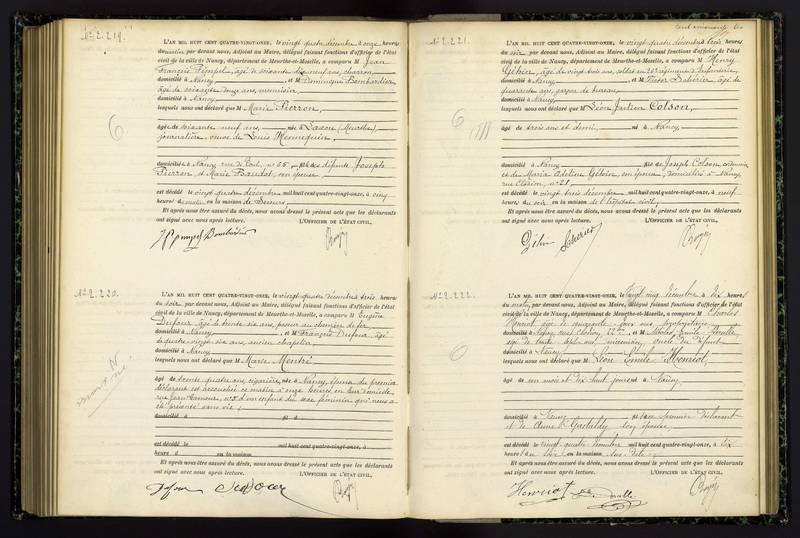 N° 2.219.
L'AN MIL HUIT CENT QUATRE-VINGT-ONZE, le vingt quatre décembre à onze heures
du matin par devant nous, Adjoint au Maire, délégué faisant fonctions d'officier de l'état
civil de la ville de Nancy, département de Meurthe-et-Moselle, a comparu M Jean
François âgé de soixante dix neuf ans, charron
domicilié à Nancy et M Dominique Bombardier
âgé de soixante onze ans, menuisier
domicilié à Nancy
lesquels nous ont déclaré que M Marie Pierron,
6
âgé de soixante neuf ans, née à Saxon (Meurthe),
journalière, veuve de Louis Hennequin,
domicilié à Nancy rue n° 25, fille des défunts Joseph
Pierron et Marie Baudot, son épouse
est décédé le vingt quatre décembre mil huit cent quatre-vingt-onze, à cinq
heures du matin en la maison de Secours,
Et après nous être assuré du décès, nous avons dressé le présent acte que les déclarants
ont signé avec nous après lecture. L'OFFICIER DE L'ÉTAT CIVIL,
Bombardier
N° 2.220.
L'AN MIL HUIT CENT QUATRE-VINGT-ONZE, le vingt quatre décembre à trois heures
du soir par devant nous, Adjoint au Maire, délégué faisant fonctions d'officier de l'état
civil de la ville de Nancy, département de Meurthe-et-Moselle, a comparu M Eugène
Dufour âgé de trente six ans, poseur au chemin de fer
domicilié à Nancy et M François Dufour, âgé
de quatre vingt six ans, ancien chapelier
domicilié à Nancy
lesquels nous ont déclaré que M Marie Mentré
âgé de trente quatre ans, cigarière, née à Nancy, épouse du premier
déclarant est accouchée ce matin à onze heures en leur domicile,
rue Jean n° 3 d'un enfant du sexe féminin qu'il nous a
été présenté sans vie ;
domicilié à
est décédé le mil huit cent quatre-vingt-onze, à
heure d en la maison
Et après nous être assuré du décès, nous avons dressé le présent acte que les déclarants
ont signé avec nous après lecture. L'OFFICIER DE L'ÉTAT CIVIL,
Dufour
N° 2.221.
L'AN MIL HUIT CENT QUATRE-VINGT-ONZE, le vingt quatre décembre à trois heures
du soir par devant nous, Adjoint au Maire, délégué faisant fonctions d'officier de l'état
civil de la ville de Nancy, département de Meurthe-et-Moselle, a comparu M Henry
Gélin, âgé de vingt trois ans, soldat au 26e régiment d'Infanterie,
domicilié à Nancy et M Victor âgé de
quarante ans, garçon de bureau,
domicilié à Nancy
lesquels nous ont déclaré que M Léon Justin Colson,
6
âgé de trois ans et demi, né à Nancy,
domicilié à Nancy fils de Joseph Colson,
et de Maria Adeline Gélin, son épouse, domiciliés à Nancy
rue n° 21,
est décédé le vingt trois décembre mil huit cent quatre-vingt-onze, à neuf
heures du soir en la maison de l'hôpital civil,
Et après nous être assuré du décès, nous avons dressé le présent acte que les déclarants
ont signé avec nous après lecture. L'OFFICIER DE L'ÉTAT CIVIL,
Gélin
N° 2.222.
L'AN MIL HUIT CENT QUATRE-VINGT-ONZE, le Vingt cinq décembre à dix heures
du matin par devant nous, Adjoint au Maire, délégué faisant fonctions d'officier de l'état
civil de la ville de Nancy, département de Meurthe-et-Moselle, a comparu M Charles
Henriot âgé de ans
domicilié à Nancy et M Emile
âgé de trente sept ans oncle du défunt
domicilié à Nancy
lesquels nous ont déclaré que M Léon Emile Henriot,
6
âgé de un mois et dix huit jours né à Nancy
domicilié à Nancy fils du premier déclarant
et de son épouse
est décédé le vingt quatre décembre mil huit cent quatre-vingt-onze, à dix
heures du soir en la maison
Et après nous être assuré du décès, nous avons dressé le présent acte que les déclarants
ont signé avec nous après lecture. L'OFFICIER DE L'ÉTAT CIVIL,
Henriot